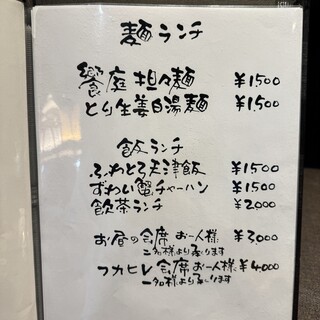 麺ランチ
饗庭担々麺 ¥1500
とり生姜白湯麺 ¥1500
飯ランチ
ふわとろ天津飯 ¥1500
ずわい蟹チャーハン ¥1500
飲茶ランチ ¥2,000
お昼の会席 お一人様 ¥3000
二名様より承ります
フカヒレ会席 お一人様 ¥4000
二名様より承ります